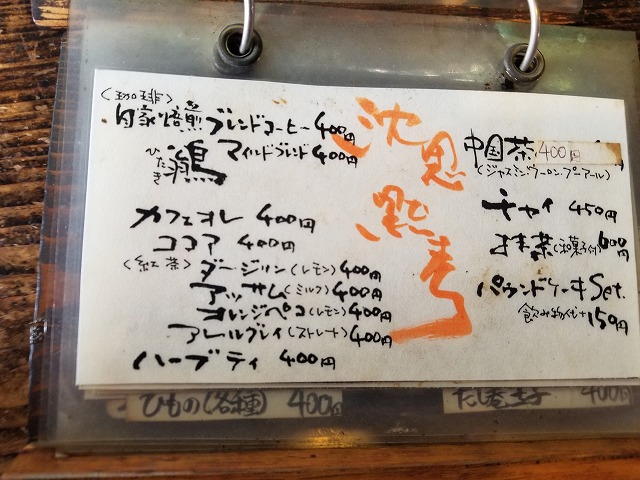 (珈琲)
自家焙煎 ブレンドコーヒー 400円
ひたき マイルドブレンド 400円
カフェオレ 400円
ココア 400円
(紅茶) ダージリン(レモン) 400円
アッサム(ミルク) 400円
オレンジペコ(レモン) 400円
アールグレイ(ストレート) 400円
ハーブティ 400円
沈思黙考
中国茶 400円
(ジャスミン・ウーロン・プーアール)
チャイ 450円
抹茶(お菓子付) 600円
パウンドケーキ Set.
飲み物代+150円
ひもの(各種) 400円
だし巻玉子 400円